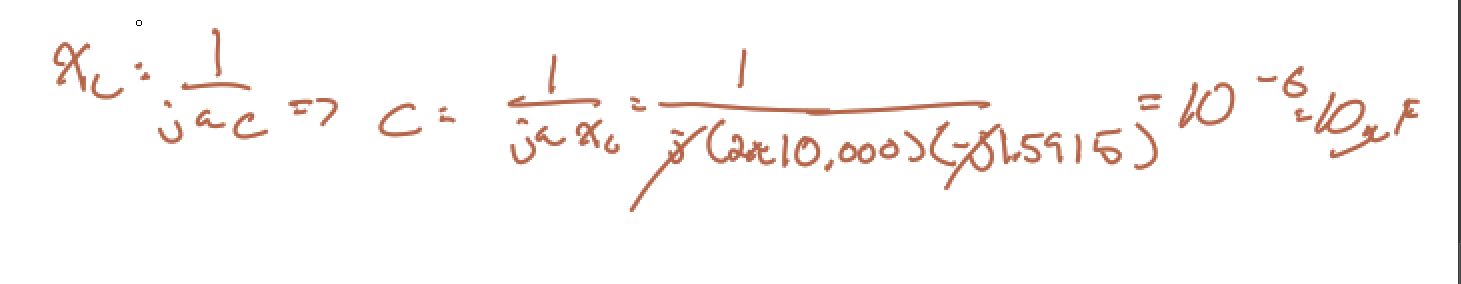 X_C = 1/(jωC) => C = 1/(jωX_C) = 1/(j(2π10,000)(-j1.5915)) = 10^-6 = 10μF